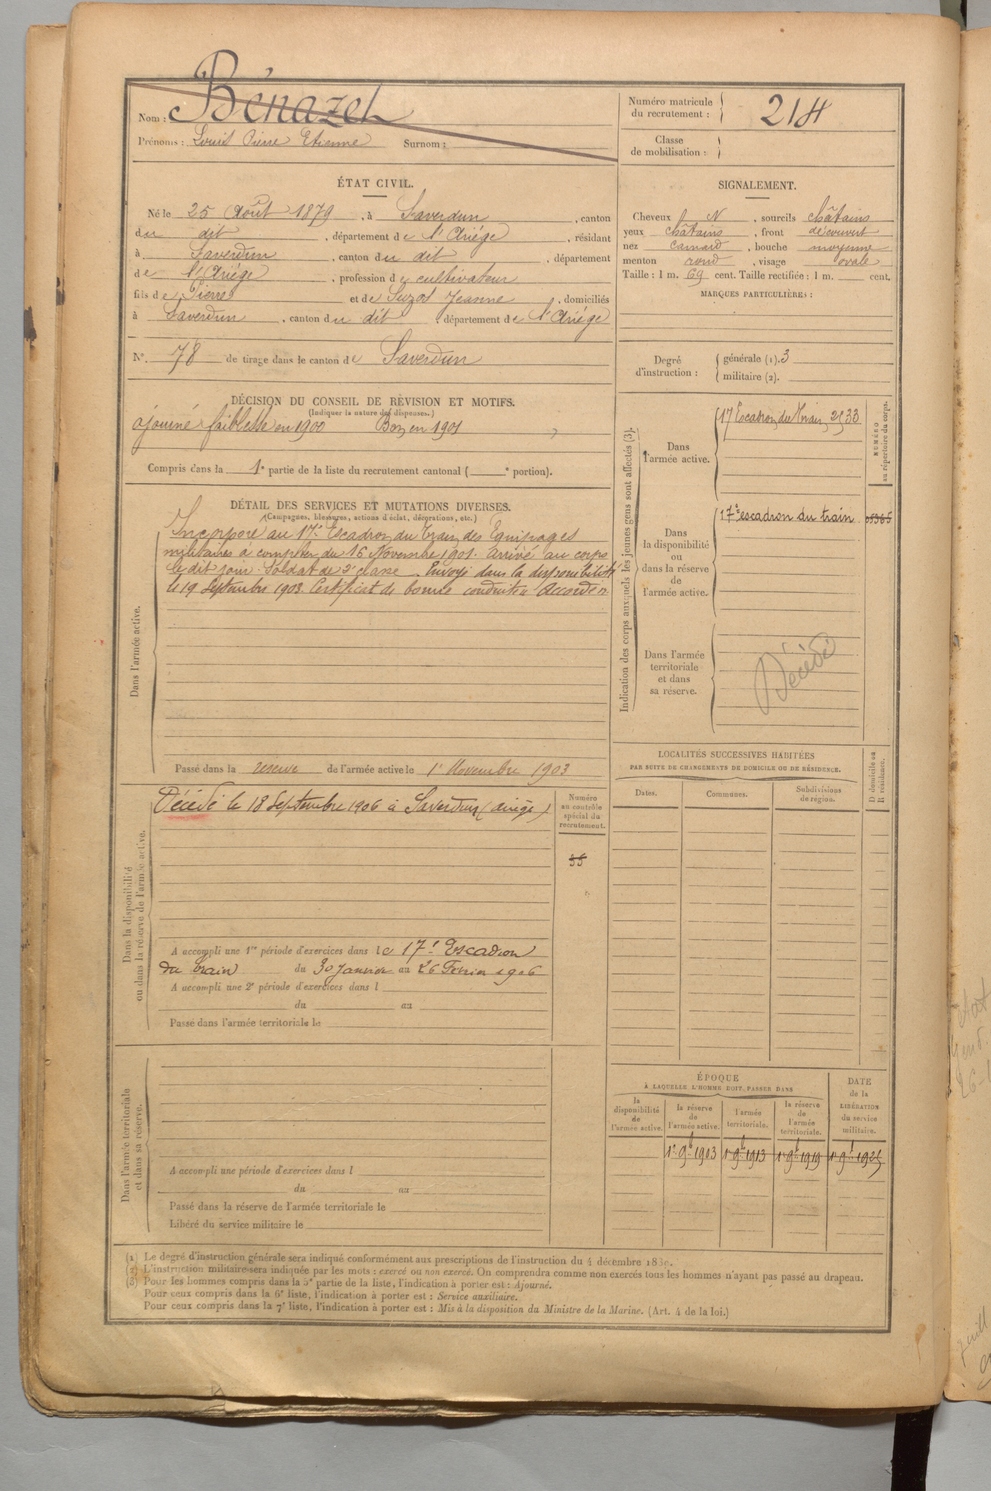 Nom : Bénazet
Prénoms : Louis Pierre Etienne Surnom :
Numéro matricule du recrutement : 214
Classe de mobilisation :
ÉTAT CIVIL.
Né le 25 Août 1879, à Saverdun, canton
du dit, département de l'Ariége, résidant
à Saverdun, canton du dit, département
de l'Ariége, profession de cultivateur
fils de Pierre et de Suzos Jeanne, domiciliés
à Saverdun, canton du dit, département de l'Ariége
N° 78 de tirage dans le canton de Saverdun
SIGNALEMENT.
Cheveux N, sourcils châtains
yeux châtains, front découvert
nez camard, bouche moyenne
menton rond, visage ovale
Taille : 1 m. 69 cent. Taille rectifiée : 1 m. cent.
MARQUES PARTICULIÈRES :
Degré d'instruction : générale (1). 3
militaire (2).
DÉCISION DU CONSEIL DE RÉVISION ET MOTIFS.
(Indiquer la nature des dispenses.)
ajourné faiblesse en 1900 Bon en 1901
Compris dans la 1e partie de la liste du recrutement cantonal ( e portion).
DÉTAIL DES SERVICES ET MUTATIONS DIVERSES.
(Campagnes, blessures, actions d'éclat, décorations, etc.)
Dans l'armée active.
Incorporé au 17e Escadron du Train des Equipages
militaires à compter du 16 Novembre 1901. Arrivé au corps
le dit jour Soldat de 2e classe. Envoyé dans la disponibilité
le 19 Septembre 1903. Certificat de bonne conduite Accordé
Passé dans la réserve de l'armée active le 1er Novembre 1903
Indication des corps auxquels les jeunes gens sont affectés (3).
NUMÉRO au répertoire du corps.
Dans l'armée active.
17 Escadron du Train 2533
Dans la disponibilité ou dans la réserve de l'armée active.
17e escadron du train
Dans l'armée territoriale et dans sa réserve.
Décédé
Dans la disponibilité ou dans la réserve de l'armée active.
Décédé le 18 Septembre 1906 à Saverdun (Ariège)
Numéro au contrôle spécial du recrutement.
55
A accompli une 1re période d'exercices dans le 17e Escadron
du train du 30 Janvier au 26 Février 1906
A accompli une 2e période d'exercices dans l
du au
Passé dans l'armée territoriale le
LOCALITÉS SUCCESSIVES HABITÉES
PAR SUITE DE CHANGEMENTS DE DOMICILE OU DE RÉSIDENCE.
Dates. Communes. Subdivisions de région. D domicile ou R résidence.
Dans l'armée territoriale et dans sa réserve.
A accompli une période d'exercices dans l
du au
Passé dans la réserve de l'armée territoriale le
Libéré du service militaire le
ÉPOQUE
À LAQUELLE L'HOMME DOIT PASSER DANS
la disponibilité de l'armée active. la réserve de l'armée active. l'armée territoriale. la réserve de l'armée territoriale. DATE de la LIBÉRATION du service militaire.
1er 9b 1903 1er 9b 1913 1er 9b 1919 1er 9b 1925
(1) Le degré d'instruction générale sera indiqué conformément aux prescriptions de l'instruction du 4 décembre
(2) L'instruction militaire sera indiquée par les mots : exercé ou non exercé. On comprendra comme non exercés tous les hommes n'ayant pas passé au drapeau.
(3) Pour les hommes compris dans la 5e partie de la liste, l'indication à porter est : Ajourné.
Pour ceux compris dans la 6e liste, l'indication à porter est : Service auxiliaire.
Pour ceux compris dans la 7e liste, l'indication à porter est : Mis à la disposition du Ministre de la Marine. (Art. 4 de la loi.)